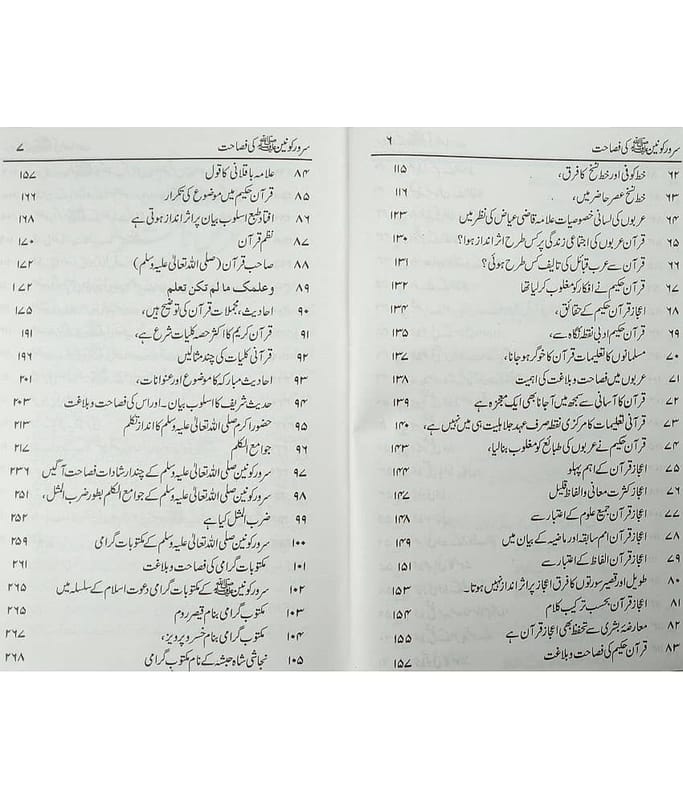 سرور کونین ﷺ کی فصاحت ۶
۶۲ خط کوفی اور خط نسخ کا فرق، ۱۱۵
۶۳ خط نسخ عصر حاضر میں، ۱۱۶
۶۴ عربوں کی لسانی خصوصیات علامہ قاضی عیاض کی نظر میں ۱۲۳
۶۵ قرآن عربوں کی اجتماعی زندگی پر کس طرح اثر انداز ہوا؟ ۱۳۰
۶۶ قرآن سے عرب قبائل کی تالیف کس طرح ہوئی؟ ۱۳۱
۶۷ قرآن حکیم نے افکار کو مغلوب کر لیا تھا ۱۳۲
۶۸ اعجاز قرآن حکیم کے حقائق، ۱۳۴
۶۹ قرآن حکیم ادبی نقطۂ نگاہ سے، ۱۳۵
۷۰ مسلمانوں کا تعلیمات قرآن کا خوگر ہو جانا، ۱۳۷
۷۱ عربوں میں فصاحت و بلاغت کی اہمیت ۱۳۸
۷۲ قرآن کا آسانی سے سمجھ میں آجانا بھی ایک معجزہ ہے ۱۳۹
۷۳ قرآنی تعلیمات کا مرکزی نقطہ صرف عہد جاہلیت ہی میں نہیں ہے، ۱۴۰
۷۴ قرآن حکیم نے عربوں کی طبائع کو مغلوب بنا لیا، ۱۴۳
۷۵ اعجاز قرآن کے اہم پہلو ۱۴۴
۷۶ اعجاز کثرت معانی و الفاظ قلیل ۱۴۷
۷۷ اعجاز قرآن جمیع علوم کے اعتبار سے ۱۴۸
۷۸ اعجاز قرآن امم سابقہ اور ماضیہ کے بیان میں ۱۴۹
۷۹ اعجاز قرآن الفاظ کے اعتبار سے ۱۵۱
۸۰ طویل اور قصیر سورتوں کا فرق اعجاز پر اثر انداز نہیں ہوتا۔ ۱۵۳
۸۱ اعجاز قرآن بحسب ترکیب کلام ۱۵۴
۸۲ معارضۂ بشری سے تحفظ بھی اعجاز قرآن ہے ۱۵۵
۸۳ قرآن حکیم کی فصاحت و بلاغت ۱۵۷
سرور کونین ﷺ کی فصاحت ۷
۸۴ علامہ باقلانی کا قول ۱۵۷
۸۵ قرآن حکیم میں موضوع کی تکرار ۱۶۶
۸۶ افتاد طبع اسلوب بیان پر اثر انداز ہوتی ہے ۱۶۸
۸۷ نظم قرآن ۱۷۰
۸۸ صاحب قرآن (صلی اللہ تعالیٰ علیہ وسلم) ۱۷۲
۸۹ وعلمک ما لم تکن تعلم ۱۷۲
۹۰ احادیث، مجملات قرآن کی توضیح ہیں، ۱۷۵
۹۱ قرآن کریم کا اکثر حصہ کلیات شرع ہے، ۱۹۱
۹۲ قرآنی کلیات کی چند مثالیں ۱۹۶
۹۳ احادیث مبارکہ کا موضوع اور عنوانات، ۲۰۱
۹۴ حدیث شریف کا اسلوب بیان۔ اور اس کی فصاحت و بلاغت ۲۰۳
۹۵ حضور اکرم صلی اللہ تعالیٰ علیہ وسلم کا انداز تکلم ۲۱۳
۹۶ جوامع الکلم ۲۱۷
۹۷ سرور کونین صلی اللہ تعالیٰ علیہ وسلم کے چند ارشادات فصاحت آگیں ۲۳۶
۹۸ سرور کونین صلی اللہ تعالیٰ علیہ وسلم کے جوامع الکلم بطور ضرب المثل، ۲۵۱
۹۹ ضرب المثل کیا ہے ۲۵۲
۱۰۰ سرور کونین صلی اللہ تعالیٰ علیہ وسلم کے مکتوبات گرامی ۲۵۹
۱۰۱ مکتوبات گرامی کی فصاحت و بلاغت ۲۶۱
۱۰۲ سرور کونین ﷺ کے مکتوبات گرامی دعوت اسلام کے سلسلہ میں ۲۶۵
۱۰۳ مکتوب گرامی بنام قیصر روم ۲۶۵
۱۰۴ مکتوب گرامی بنام خسرو پرویز، ۲۶۷
۱۰۵ نجاشی شاہ حبشہ کے نام مکتوب گرامی ۲۶۸